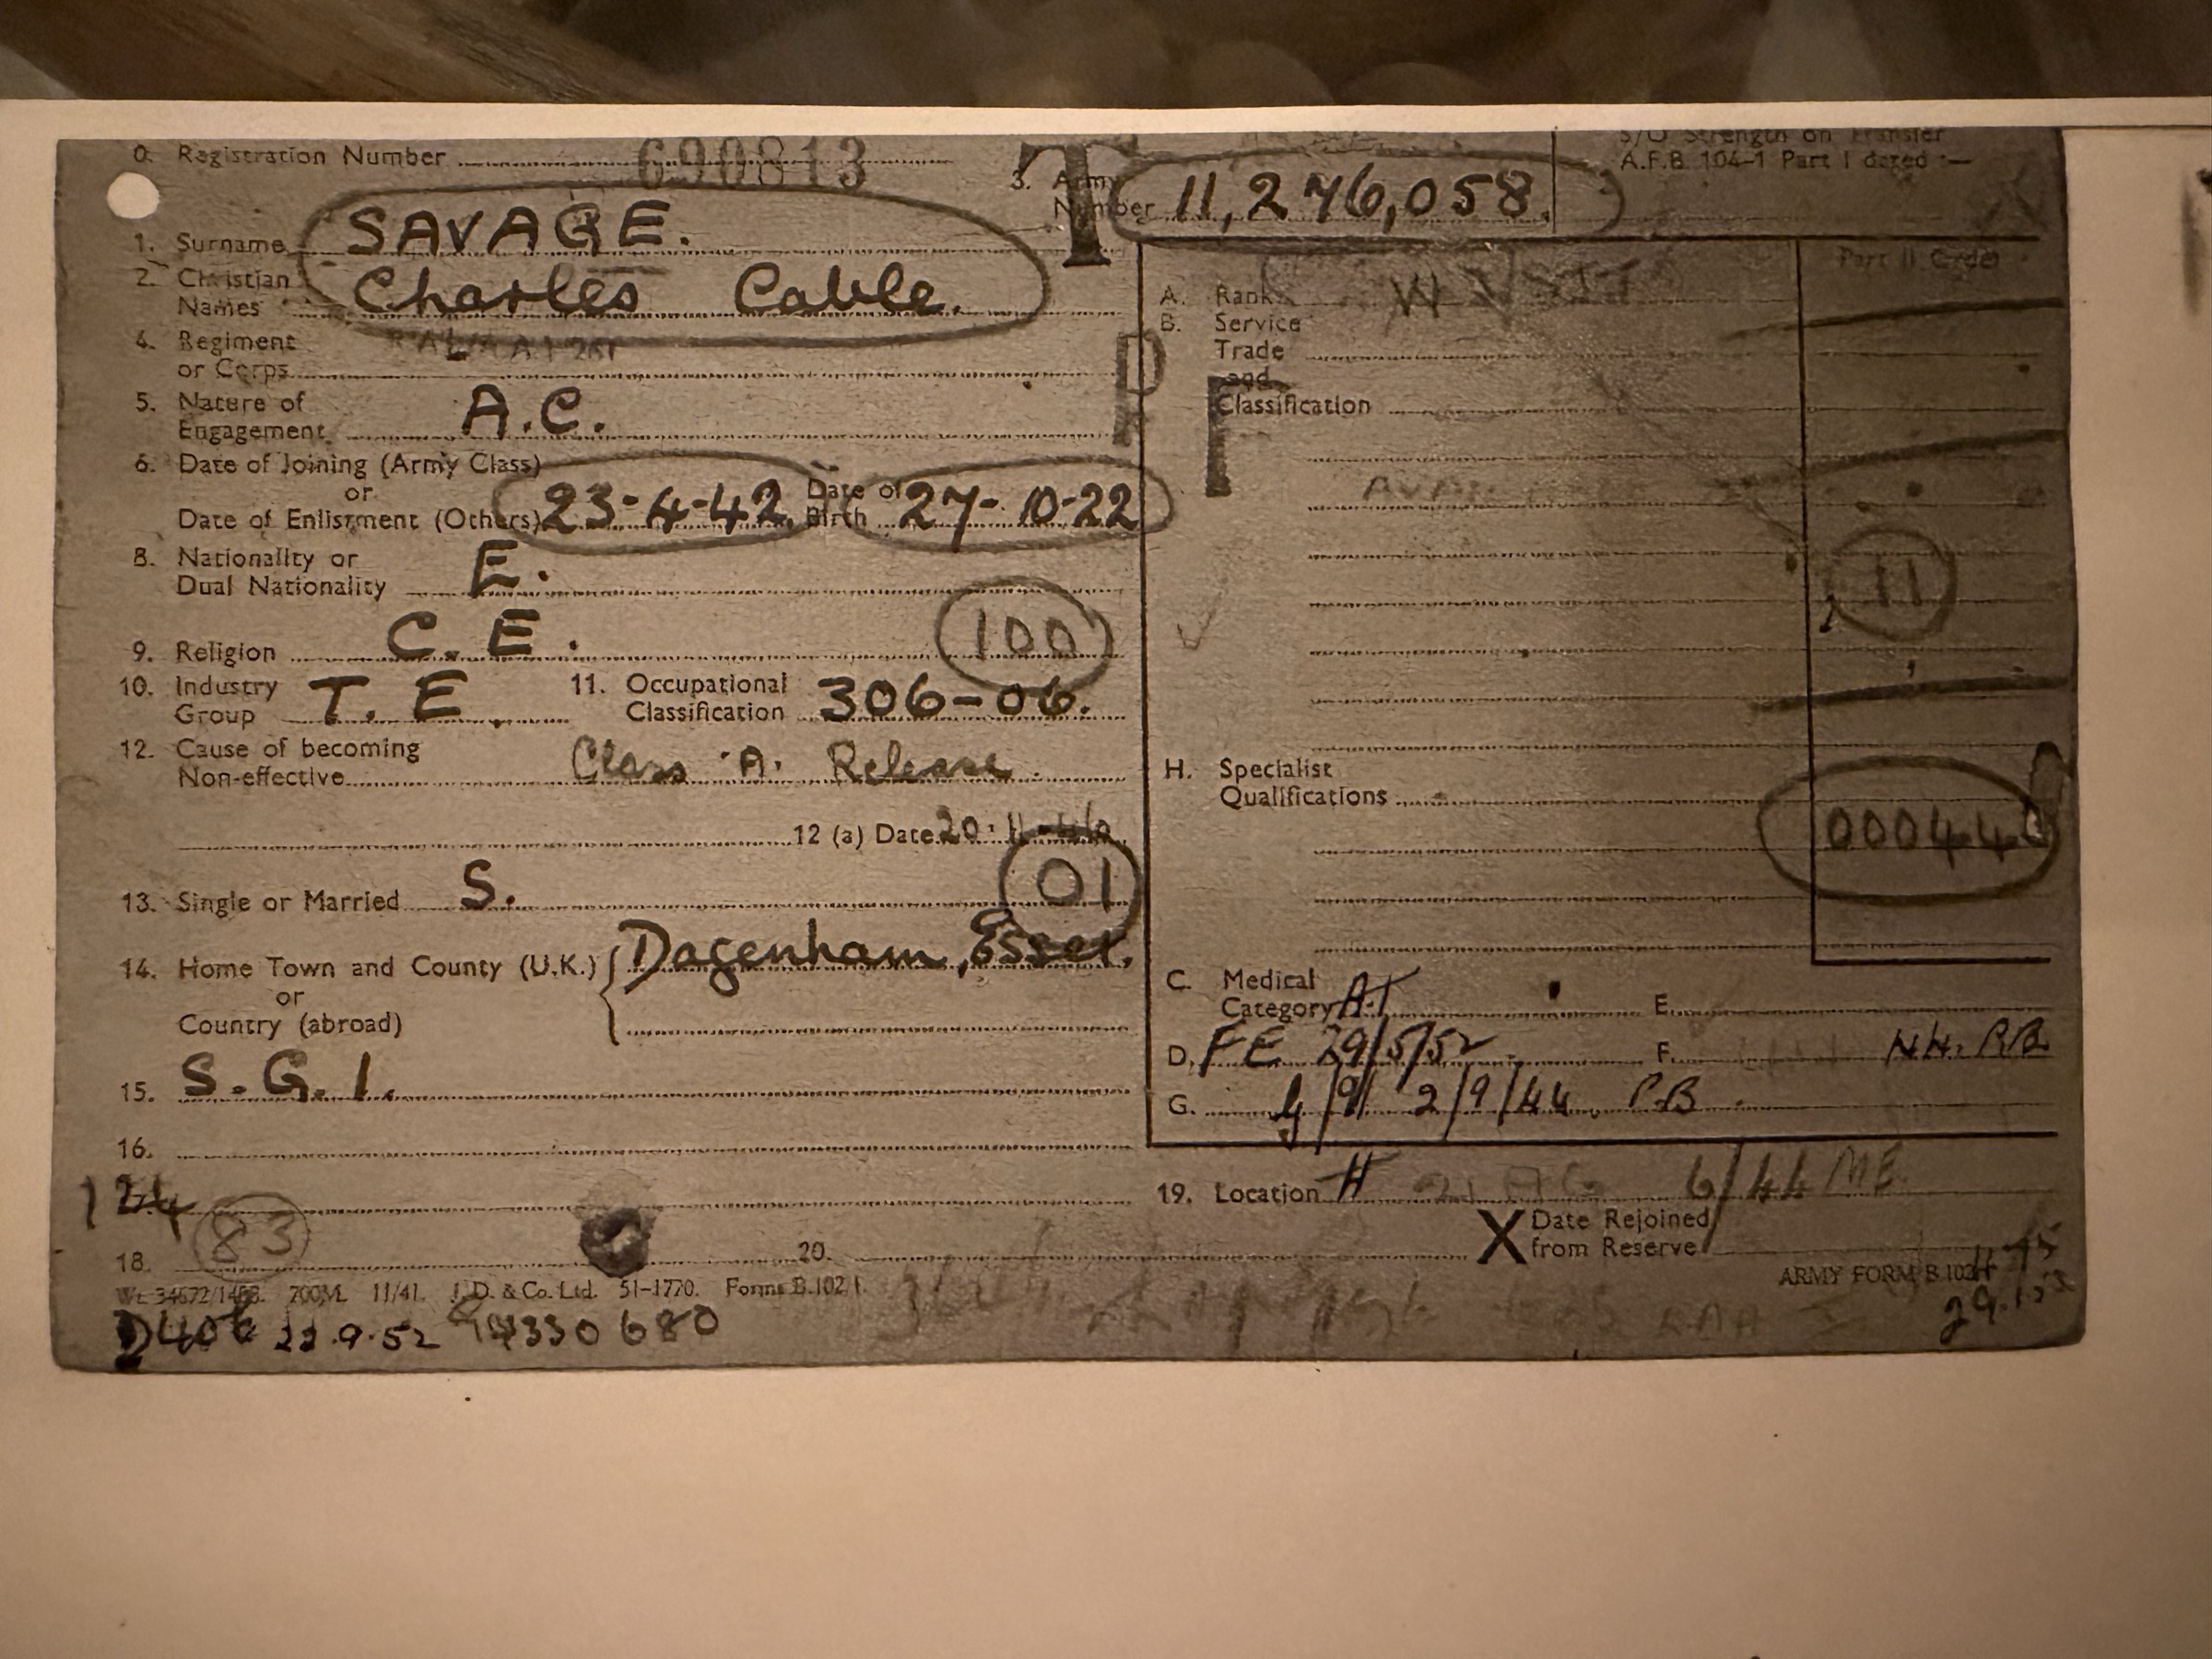 0. Registration Number 690813
S/O Strength on Transfer
A.F.B. 104-1 Part I dated :—
T
3. Army Number 11,276,058.
1. Surname SAVAGE.
2. Christian Names Charles Cable.
4. Regiment or Corps
5. Nature of Engagement A.C.
6. Date of Joining (Army Class)
or
Date of Enlistment (Others) 23-4-42. Date of Birth 27-10-22
8. Nationality or Dual Nationality E.
100
9. Religion C.E.
10. Industry Group T.E. 11. Occupational Classification 306-06.
12. Cause of becoming Non-effective Class 'A' Release.
12 (a) Date 20.11.46
01
13. Single or Married S.
14. Home Town and County (U.K.) Dagenham, Essex.
or
Country (abroad)
15. S.G.1.
16.
124
83
18.
20.
Part II Order
A. Rank
B. Service
Trade
and
Classification
11
H. Specialist Qualifications
C. Medical Category A1
E.
D. FE 29/5/52
F.
G. 2/9/44. P.B.
19. Location 6/44 ME
X Date Rejoined from Reserve
700M. 11/41. J.D. & Co. Ltd. 51-1770. Forms B.102/1.
ARMY FORM B.102
22.9.52